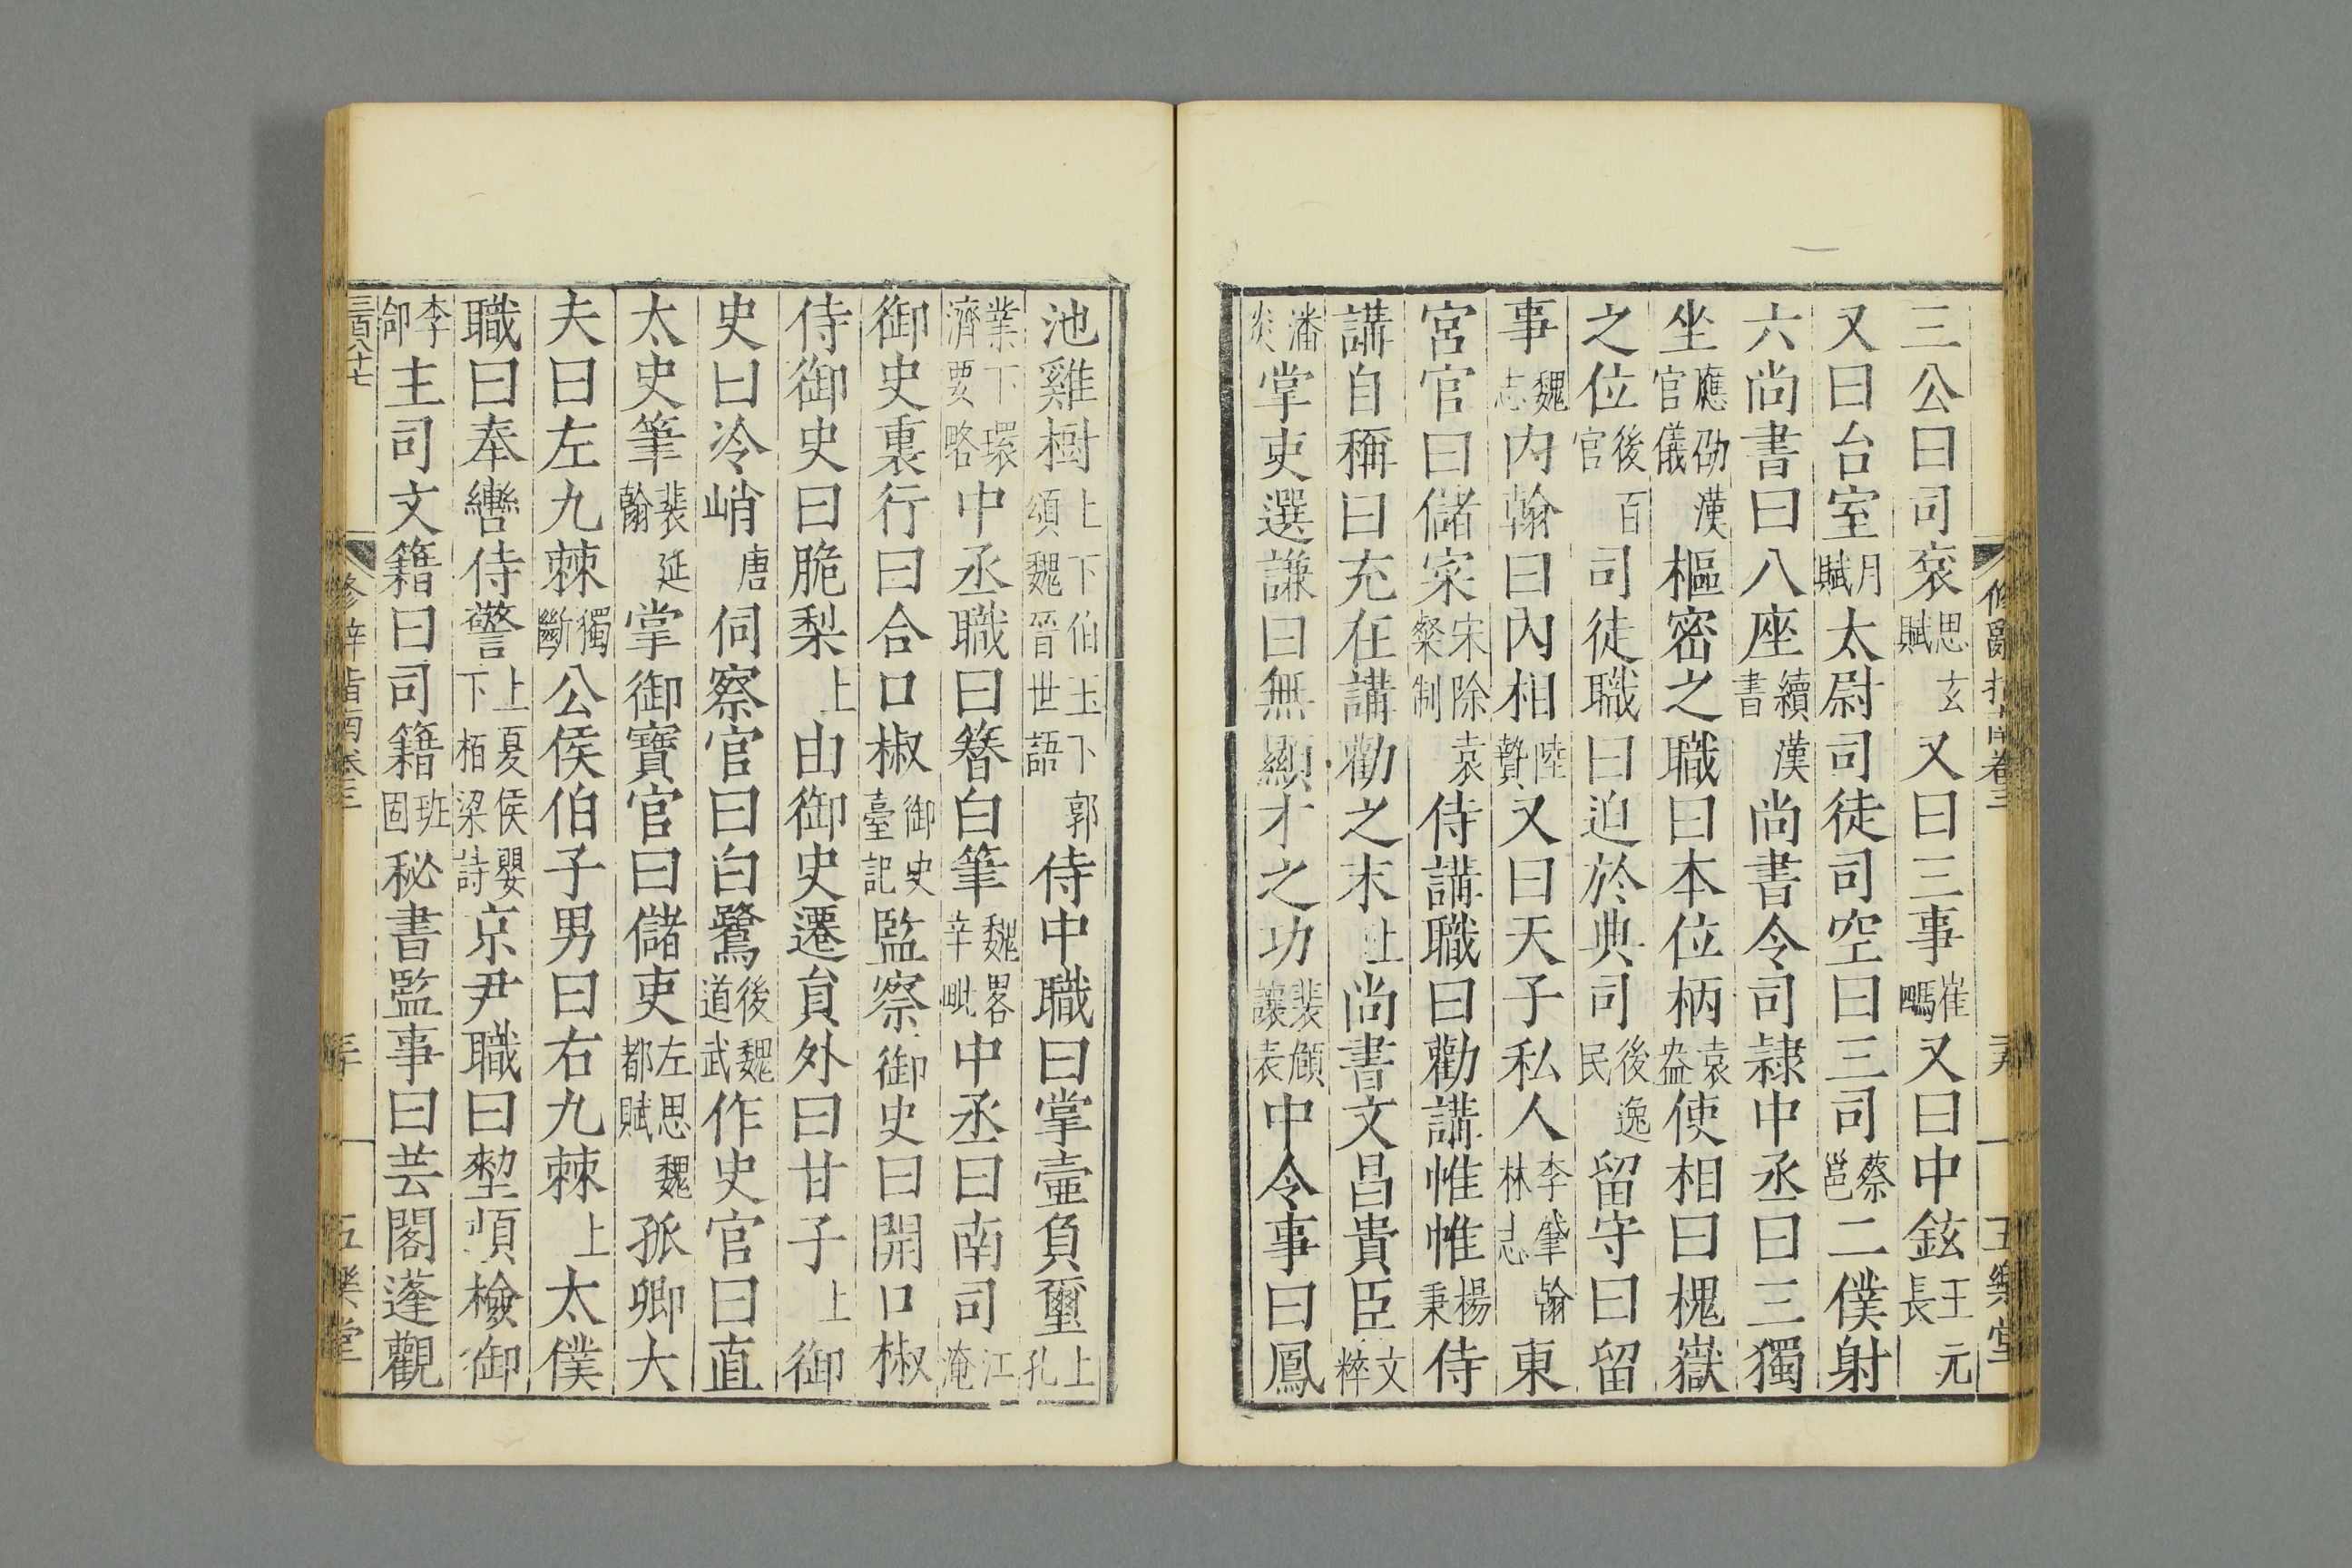 三公曰司衮思玄賦又曰三事崔駰又曰中鉉王元長
又曰台室月賦太尉司徒司空曰三司蔡邕二僕射
六尚書曰八座續漢書尚書令司隷中丞曰三獨
坐應劭漢官儀樞密之職曰本位柄袁盎使相曰槐嶽
之位後百官司徒職曰迫於典司後逸民留守曰留
事魏志内翰曰內相陸贄又曰天子私人李肇翰林志東
宮官曰儲寀宋除袁粲制侍講職曰勸講帷帷楊秉侍
講自稱曰充在講勸之末上尚書文昌貴臣文粹
潘炎掌吏選謙曰無顯才之功裴頠讓表中令事曰鳳
池雞樹上下伯玉下郭頒魏晉世語侍中職曰掌壷負璽上孔
業下環濟要略中丞職曰簪白筆魏畧辛毗中丞曰南司江淹
御史裏行曰合口椒御史臺記監察御史曰開口椒
侍御史曰脆梨上由御史遷貟外曰甘子上御
史曰冷峭唐伺察官曰白鷺後魏道武作史官曰直
太史筆裴延翰掌御寶官曰儲吏左思魏都賦孤卿大
夫曰左九棘獨斷公侯伯子男曰右九棘上太僕
職曰奉轡侍警上夏侯嬰下栢梁詩京尹職曰塹項檢御
李郃主司文籍曰司籍班固秘書監事曰芸閣蓬觀
三百八十七
修辞指南卷三
五樂堂